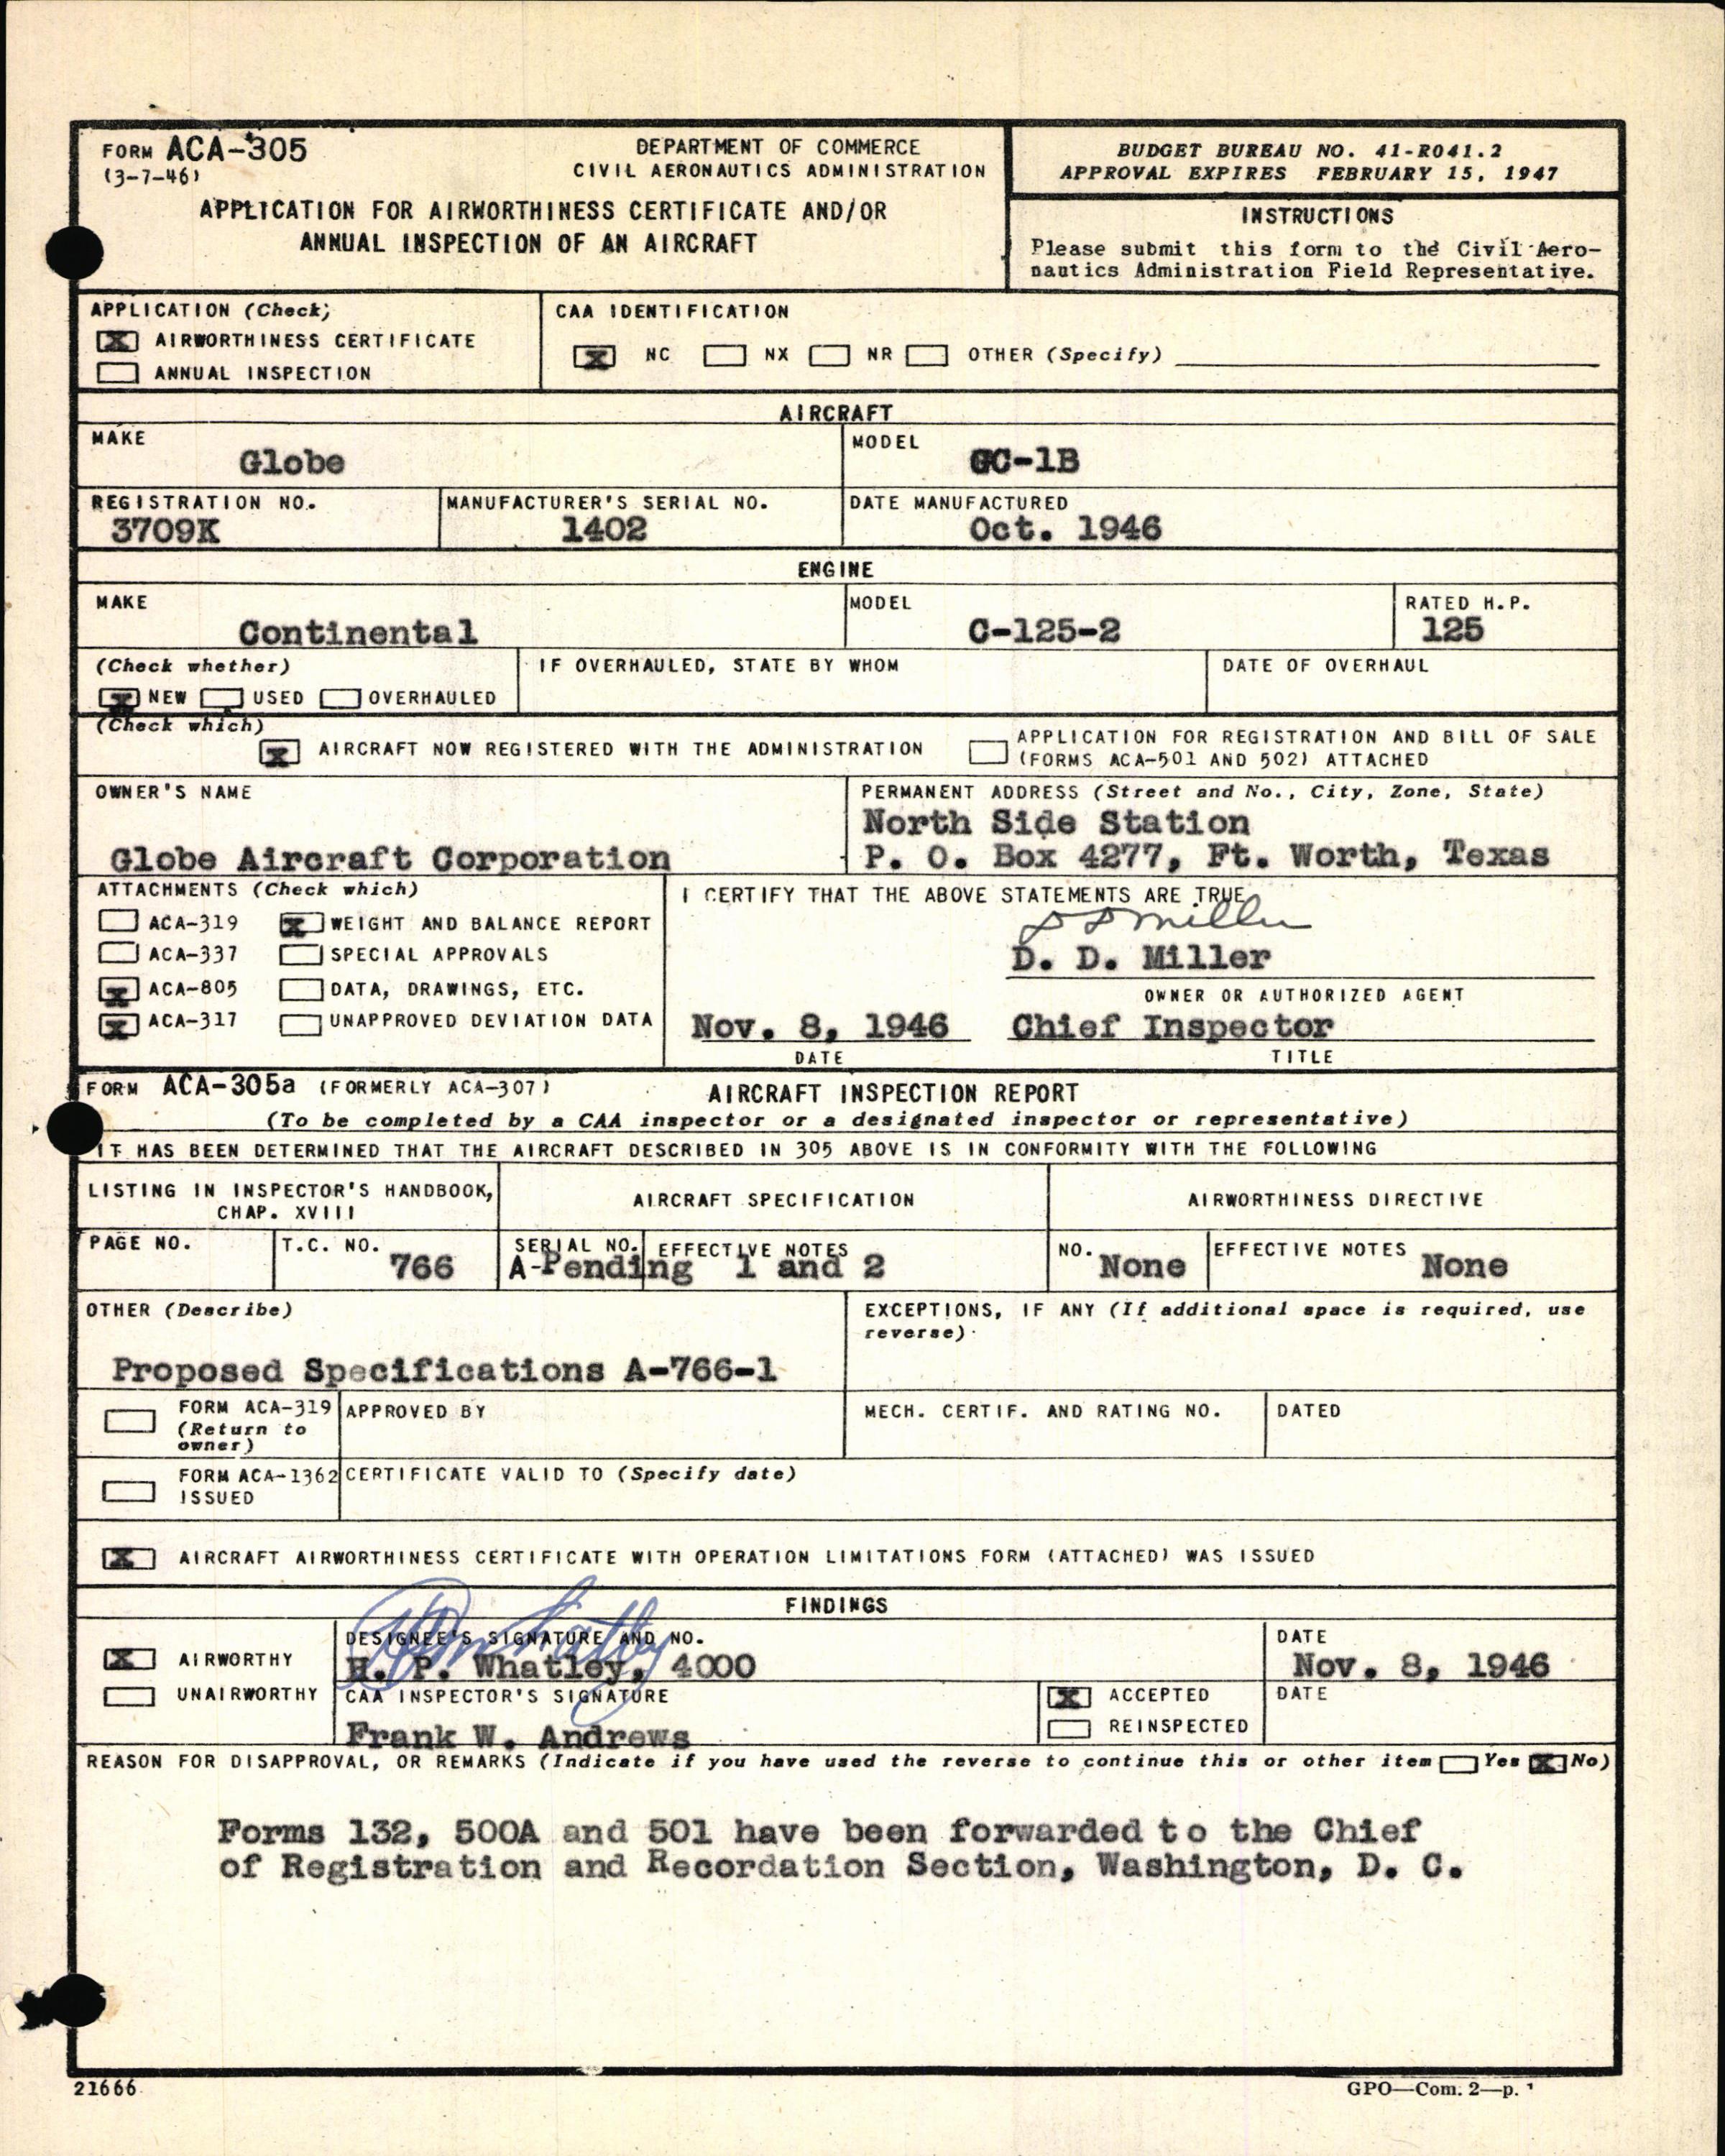 FORM ACA-305
(3-7-46)
DEPARTMENT OF COMMERCE
CIVIL AERONAUTICS ADMINISTRATION
APPLICATION FOR AIRWORTHINESS CERTIFICATE AND/OR
ANNUAL INSPECTION OF AN AIRCRAFT
BUDGET BUREAU NO. 41-R041.2
APPROVAL EXPIRES FEBRUARY 15, 1947
INSTRUCTIONS
Please submit this form to the Civil Aero-
nautics Administration Field Representative.
APPLICATION (Check)
X AIRWORTHINESS CERTIFICATE
ANNUAL INSPECTION
CAA IDENTIFICATION
X NC NX NR OTHER (Specify)
AIRCRAFT
MAKE
Globe
MODEL
GC-1B
REGISTRATION NO.
3709K
MANUFACTURER'S SERIAL NO.
1402
DATE MANUFACTURED
Oct. 1946
ENGINE
MAKE
Continental
MODEL
C-125-2
RATED H.P.
125
(Check whether)
X NEW USED OVERHAULED
IF OVERHAULED, STATE BY WHOM
DATE OF OVERHAUL
(Check which)
X AIRCRAFT NOW REGISTERED WITH THE ADMINISTRATION
APPLICATION FOR REGISTRATION AND BILL OF SALE
(FORMS ACA-501 AND 502) ATTACHED
OWNER'S NAME
Globe Aircraft Corporation
PERMANENT ADDRESS (Street and No., City, Zone, State)
North Side Station
P. O. Box 4277, Ft. Worth, Texas
ATTACHMENTS (Check which)
ACA-319 X WEIGHT AND BALANCE REPORT
ACA-337 SPECIAL APPROVALS
X ACA-805 DATA, DRAWINGS, ETC.
X ACA-317 UNAPPROVED DEVIATION DATA
I CERTIFY THAT THE ABOVE STATEMENTS ARE TRUE
D D Miller
D. D. Miller
OWNER OR AUTHORIZED AGENT
Nov. 8, 1946 Chief Inspector
DATE TITLE
FORM ACA-305a (FORMERLY ACA-307) AIRCRAFT INSPECTION REPORT
(To be completed by a CAA inspector or a designated inspector or representative)
IT HAS BEEN DETERMINED THAT THE AIRCRAFT DESCRIBED IN 305 ABOVE IS IN CONFORMITY WITH THE FOLLOWING
LISTING IN INSPECTOR'S HANDBOOK,
CHAP. XVIII
AIRCRAFT SPECIFICATION
AIRWORTHINESS DIRECTIVE
PAGE NO.
T.C. NO.
766
SERIAL NO.
A-Pending
EFFECTIVE NOTES
1 and 2
NO.
None
EFFECTIVE NOTES
None
OTHER (Describe)
Proposed Specifications A-766-1
EXCEPTIONS, IF ANY (If additional space is required, use
reverse).
FORM ACA-319
(Return to
owner)
APPROVED BY
MECH. CERTIF. AND RATING NO.
DATED
FORM ACA-1362
ISSUED
CERTIFICATE VALID TO (Specify date)
X AIRCRAFT AIRWORTHINESS CERTIFICATE WITH OPERATION LIMITATIONS FORM (ATTACHED) WAS ISSUED
FINDINGS
X AIRWORTHY
UNAIRWORTHY
DESIGNEE'S SIGNATURE AND NO.
H P Whatley
H. P. Whatley, 4000
DATE
Nov. 8, 1946
CAA INSPECTOR'S SIGNATURE
Frank W. Andrews
X ACCEPTED
REINSPECTED
DATE
REASON FOR DISAPPROVAL, OR REMARKS (Indicate if you have used the reverse to continue this or other item Yes X No)
Forms 132, 500A and 501 have been forwarded to the Chief
of Registration and Recordation Section, Washington, D. C.
21666
GPO—Com. 2—p. 1